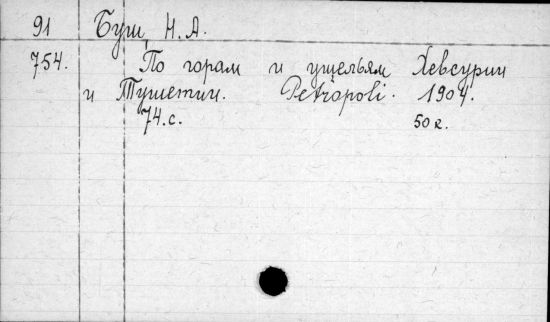 91 Буш, Н. А.
754. По горам и ущельям Хевсурии
и Тушетии. Petropoli. 1904.
74.с. 50 к.